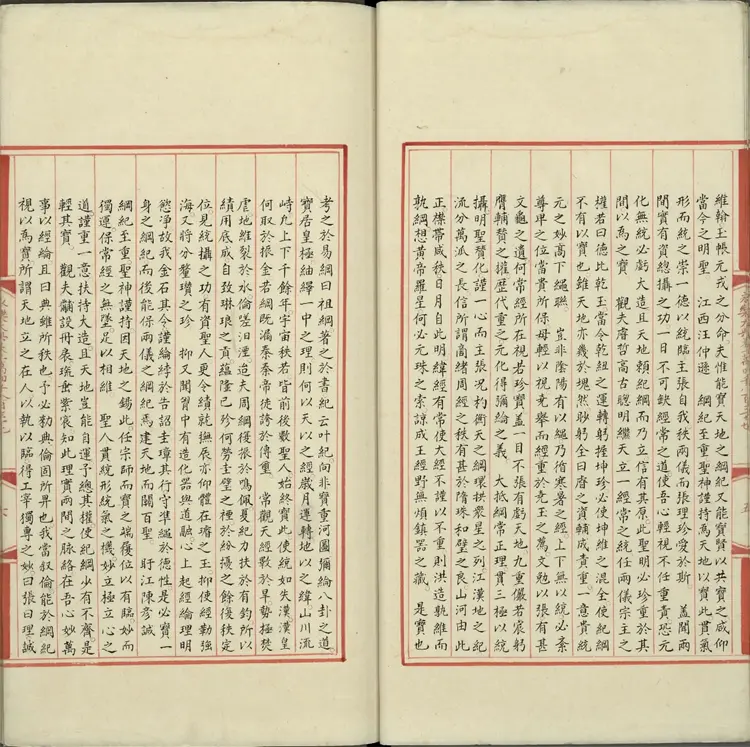 維翰玉帳元戎之分命夫惟能寶天地之綱紀又能寶賢以共寶之咸仰
當今之明聖 江西汪仲遜 綱紀至重聖神謹持為天地以寶此貫氣
形而統之崇一德以統臨主張自我秩兩儀而張理珍愛於斯 蓋聞兩
間實有資總攝之功一日不可缺經常之道使吾心輕視不任重責恐元
化無統必虧大造且天地賴紀綱而乃立信有其原此聖明必珍重於其
間以為之寶 觀夫睿哲高古聰明繼天立一經常之統任兩儀宗主之
權若曰德比乾玉當令乾紐之運轉躬握坤珍必使坤維之混全使紀綱
不有以寶也雖天地亦幾於塊然眇躬全曰睿之資輔成貴重一意貴統
元之妙高下繩聯 豈非陰陽有以繩乃循寒暑之經上下無以統必紊
尊卑之位當貴所保毋輕以視堯舉舜而經重於堯玉之萬文勉以張有甚
文龜之遺何常經所在視若珍寶蓋一目不張有虧天地九重儼若宸躬
膺輔贊之權歷代重之元化得彌綸之義 大抵綱常正理貫三極以統
攝明聖贊化謹一心而主張況杓衡天之綱環拱衆星之列江漢地之紀
流分萬派之長信所謂高緒周經之秩有甚於隋珠和璧之良山河由此
正櫟帶咸秩日月自此明緯經有常使大經不謹以不重則洪造孰維而
孰綱想黄帝羅星何必元珠之索諒成王經野無煩鎮器之藏 是寶也
考之於易綱曰祖綱著之於書紀云叶紀向非寶重河圖彌綸八卦之道
寶居皇極紬繹一中之理則何以天以之經歲月運轉地以之緯山川流
峙九上下千餘年宇宙秩若皆前後數聖人始終寶此使統如失漢漢皇
何取於振金若綱既漏秦秦帝徒誇於傳璽 常觀天經斁於旱勢極焚
虐地維裂於水倫嗟汨湮造夫周綱復張於鳴佩夏紀力扶於有鈞所以
績用底咸自致琳琅之貢蘊隆已殄何勞圭璧之禋於紛擾之餘復秩定
位見統攝之功有資聖人更今績就撫辰亦仰體在璿之玉抑使經勤強
海又將分釐瓚之珍 抑又聞胷中有造化器與道融心上起經綸理明
慾凈故我金石其令謹綸綍於告詔圭璋其行守準繩於德性是必寶一
身之綱紀而後能保兩儀之綱紀焉建天地而關百聖 盱江陳彦誠
綱紀至重聖神謹持因天地之錫此任宗師而寶之端獲位以有臨妙而
獨運保常經之無墜足以相維 聖人貫統形統氣之機妙立極立心之
道謹重一意扶持大造且天地豈能自運予總其權使紀綱少有不齊是
輕其寶 觀夫黼設冊扆珫垂紫宸知此理實兩間之脉絡在吾心妙萬
事以經綸且曰典雖所秩也予必勑典倫固所昇也我當叙倫能於綱紀
視以為寶所謂天地立之在人以執以臨得工宰獨專之妙曰張曰理誠